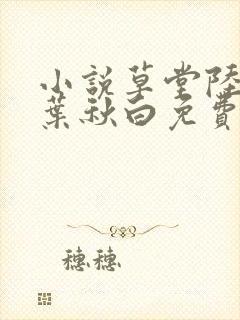 小說草堂陸
葉秋白免費
穗穗